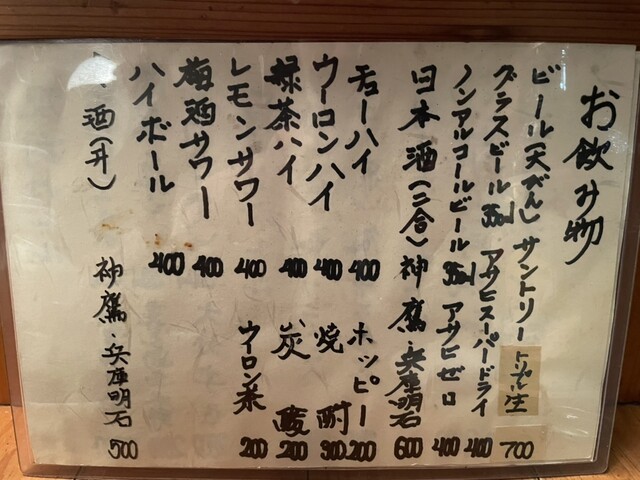 お飲み物
ビール(大びん) サントリー トリプル生 700
グラスビール 350ml アサヒスーパードライ 400
ノンアルコールビール 350ml アサヒゼロ 400
日本酒(二合) 神鷹・兵庫明石 600
チューハイ 400 ホッピー 200
ウーロンハイ 400 焼酎 300
緑茶ハイ 400 炭酸 200
レモンサワー 400 ウーロン茶 200
梅酒サワー 400
ハイボール 400
酒(升) 神鷹・兵庫明石 500